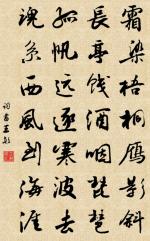 霜染梧桐雁影斜
長亭餞酒咽琵琶
孤帆遠逐寒波去
魂系西風到海涯